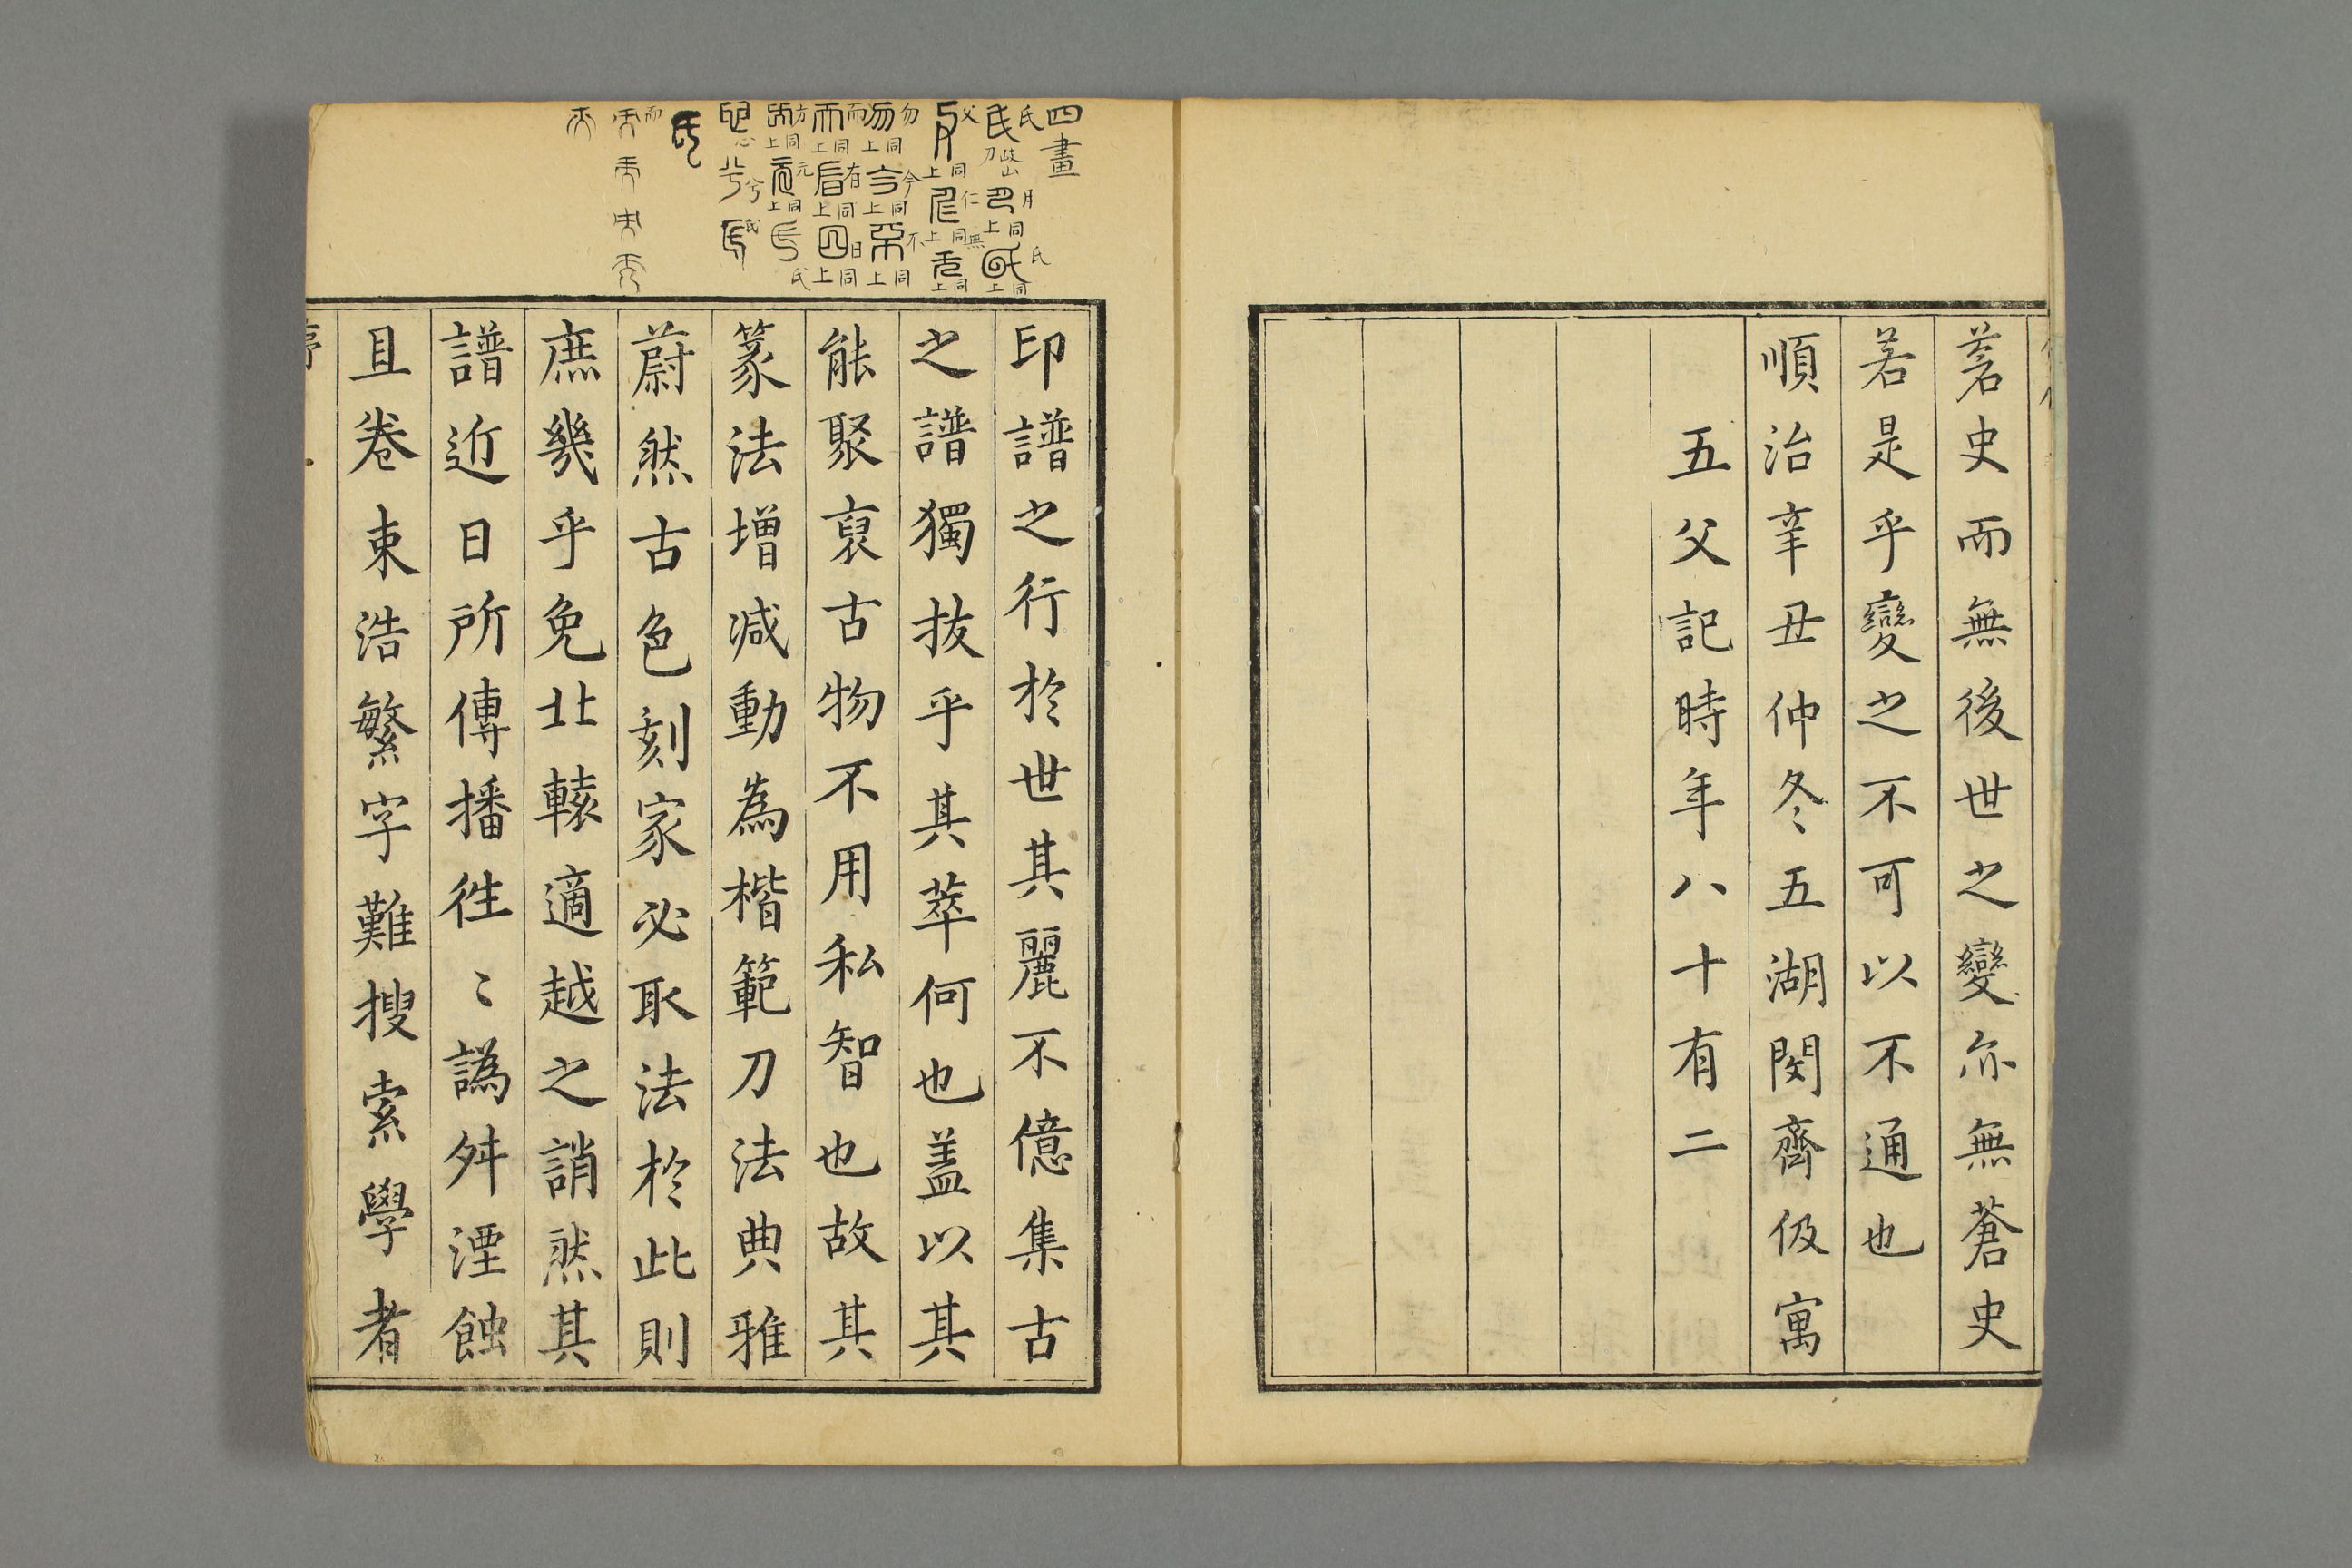 蒼史而無後世之變亦無蒼史
若是乎變之不可以不通也
順治辛丑仲冬五湖閔齊伋寓
五父記時年八十有二
四畫
印譜之行於世其麗不億集古
之譜獨拔乎其萃何也蓋以其
能聚裒古物不用私智也故其
篆法增減動為楷範刀法典雅
蔚然古色刻家必取法於此則
庶幾乎免北轅適越之誚然其
譜近日所傳播徃〻譌舛湮蝕
且卷束浩繁字難搜索學者
序